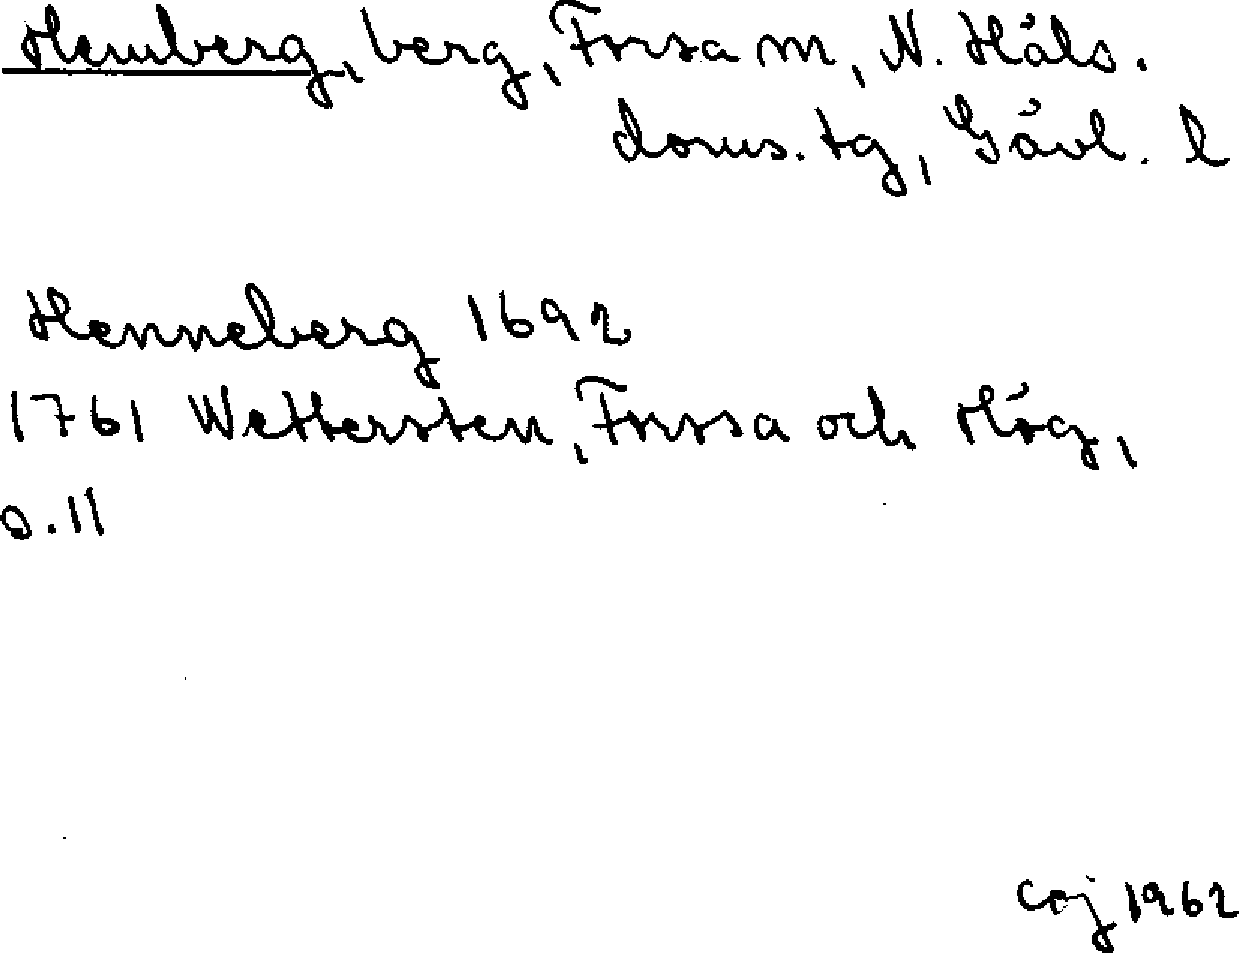 Hemberg, berg, Forsa m, N. Häls.
doms. tg, Gävl. l
Henneberg 1692
1761 Wettersten, Forssa och Hög,
s. 11
Coj 1962